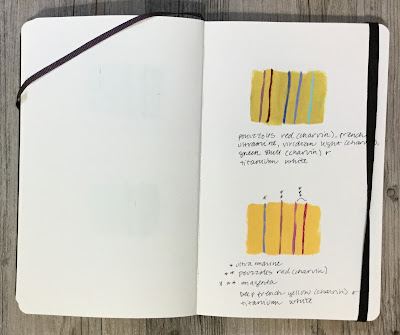 pouzzoles red (charvin), french
ultramarine, viridian light (charvin),
green blue (charvin) &
titanium white
* ** ***
* ultra marine
** pouzzoles red (charvin)
*** magenta
deep french yellow (charvin) &
titanium white